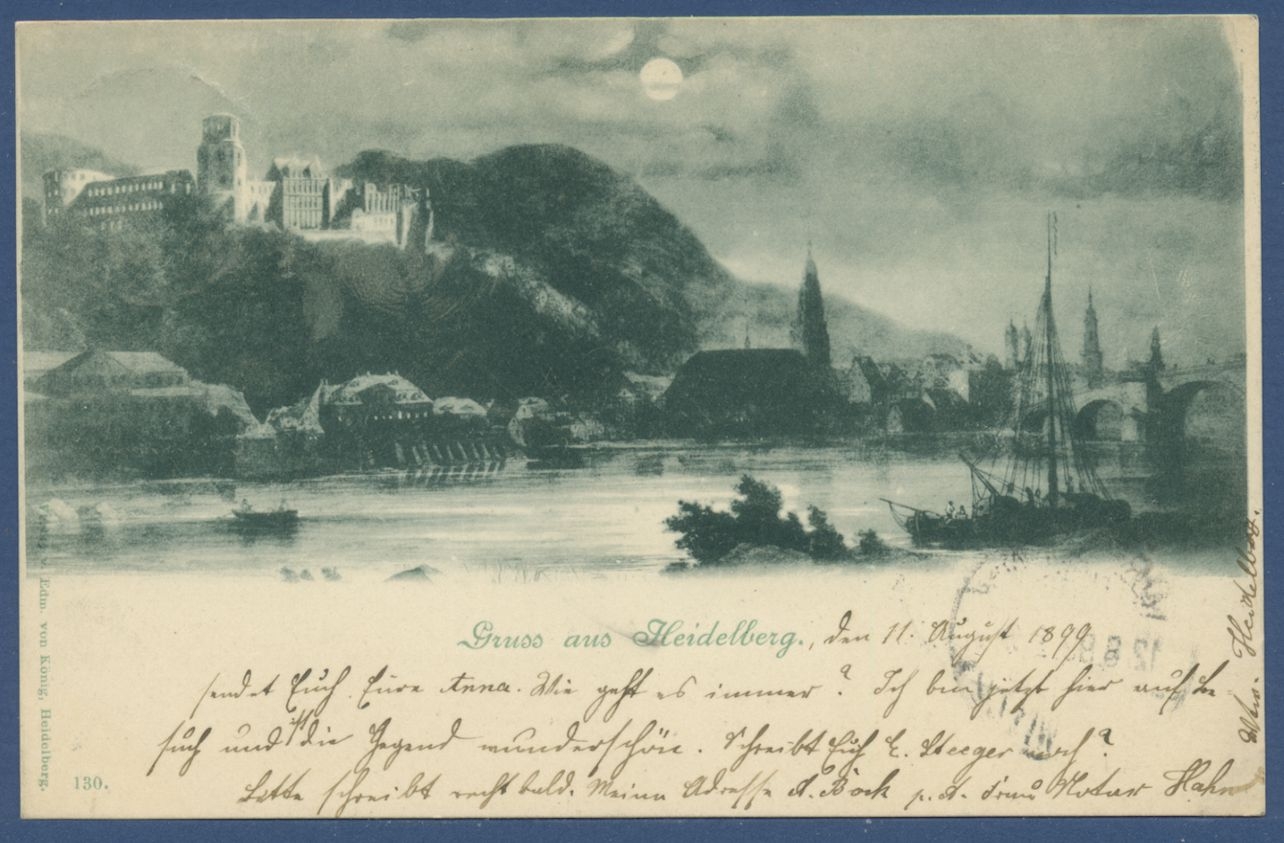 Gruss aus Heidelberg., den 11. August 1899
sendet Euch Eure Anna. Wie geht es immer? Ich bin jetzt hier auf Be
such und ist die Gegend wunderschön. Schreibt Euch E. Steeger noch?
Bitte schreibt recht bald. Meine Adresse A. Bock p. A. Notar Hahn
Heidelberg.
Verlag v. Edm. von König, Heidelberg.
130.
12 8